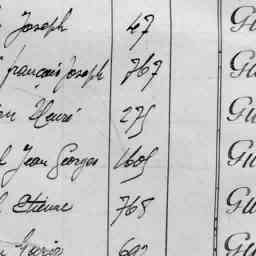 Joseph 47 Gu
françois Joseph 767 Gu
Henri 275 Gu
Jean Georges 1605 Gu
Etienne 765 Gu
692 Gu